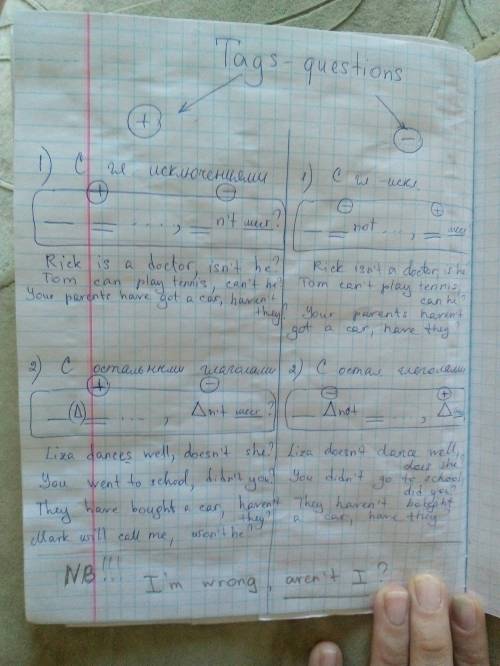 Tags - questions
+
−
1) С гл исключениями
+ −
— = ..., = n't мест?
Rick is a doctor, isn't he?
Tom can play tennis, can't he?
Your parents have got a car, haven't
they?
2) С остальными глаголами
+ −
— (Δ) = ..., Δn't мест?
Liza dances well, doesn't she?
You went to school, didn't you?
They have bought a car, haven't
they?
Mark will call me, won't he?
1) С гл -искл
− +
— = not ..., = мест
Rick isn't a doctor, is he
Tom can't play tennis,
can he?
Your parents haven't
got a car, have they?
2) С остал глаголами
− +
— Δnot = ..., Δ
Liza doesn't dance well,
does she?
You didn't go to school
did you?
They haven't bought
a car, have they
NB!!! I'm wrong, aren't I?